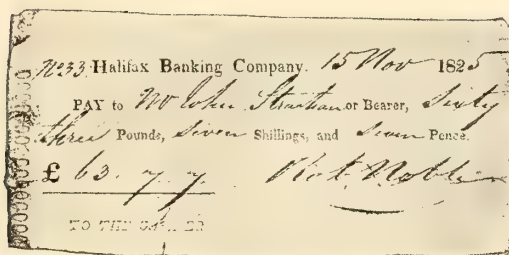 No 33. Halifax Banking Company. 15 Nov 1825
PAY to Mr John Strachan or Bearer, Sixty
three Pounds, Seven Shillings, and Seven Pence.
£ 63. 7. 7. Robt. Noble
TO THE CASHIER